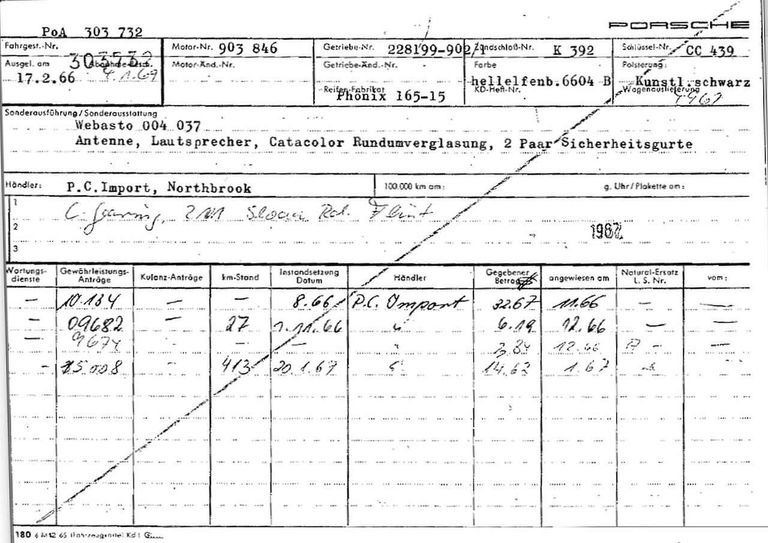 PoA 303 732
PORSCHE
Fahrgest.-Nr. Motor-Nr. 903 846 Getriebe-Nr. 228199-902/1 Zündschloß-Nr. K 392 Schlüssel-Nr. CC 439
Ausgel. am 17.2.66 Motor-Änd.-Nr. Getriebe-Änd.-Nr. Farbe hellelfenb.6604 B Polsterung: Kunstl.schwarz
Reifen-Fabrikat Phönix 165-15 KD-Heft-Nr. Wagenauslieferung
Sonderausführung/Sonderausstattung
Webasto 004 037
Antenne, Lautsprecher, Catacolor Rundumverglasung, 2 Paar Sicherheitsgurte
Händler: P.C.Import, Northbrook 100.000 km am: g. Uhr/Plakette am:
1
2 1967
3
Wartungsdienste Gewährleistungs-Anträge Kulanz-Anträge km-Stand Instandsetzung Datum Händler Gegebener Betrag angewiesen am Natural-Ersatz L. S. Nr. vom:
— 10.134 — — 8.66 P.C. Import 32.67 11.66 — —
— 09682 — 27 1.11.66 " 6.19 12.66 — —
— 9674 — " 3.84 12.66 —
- 15.008 - 413 20.1.67 " 14.63 1.67
180